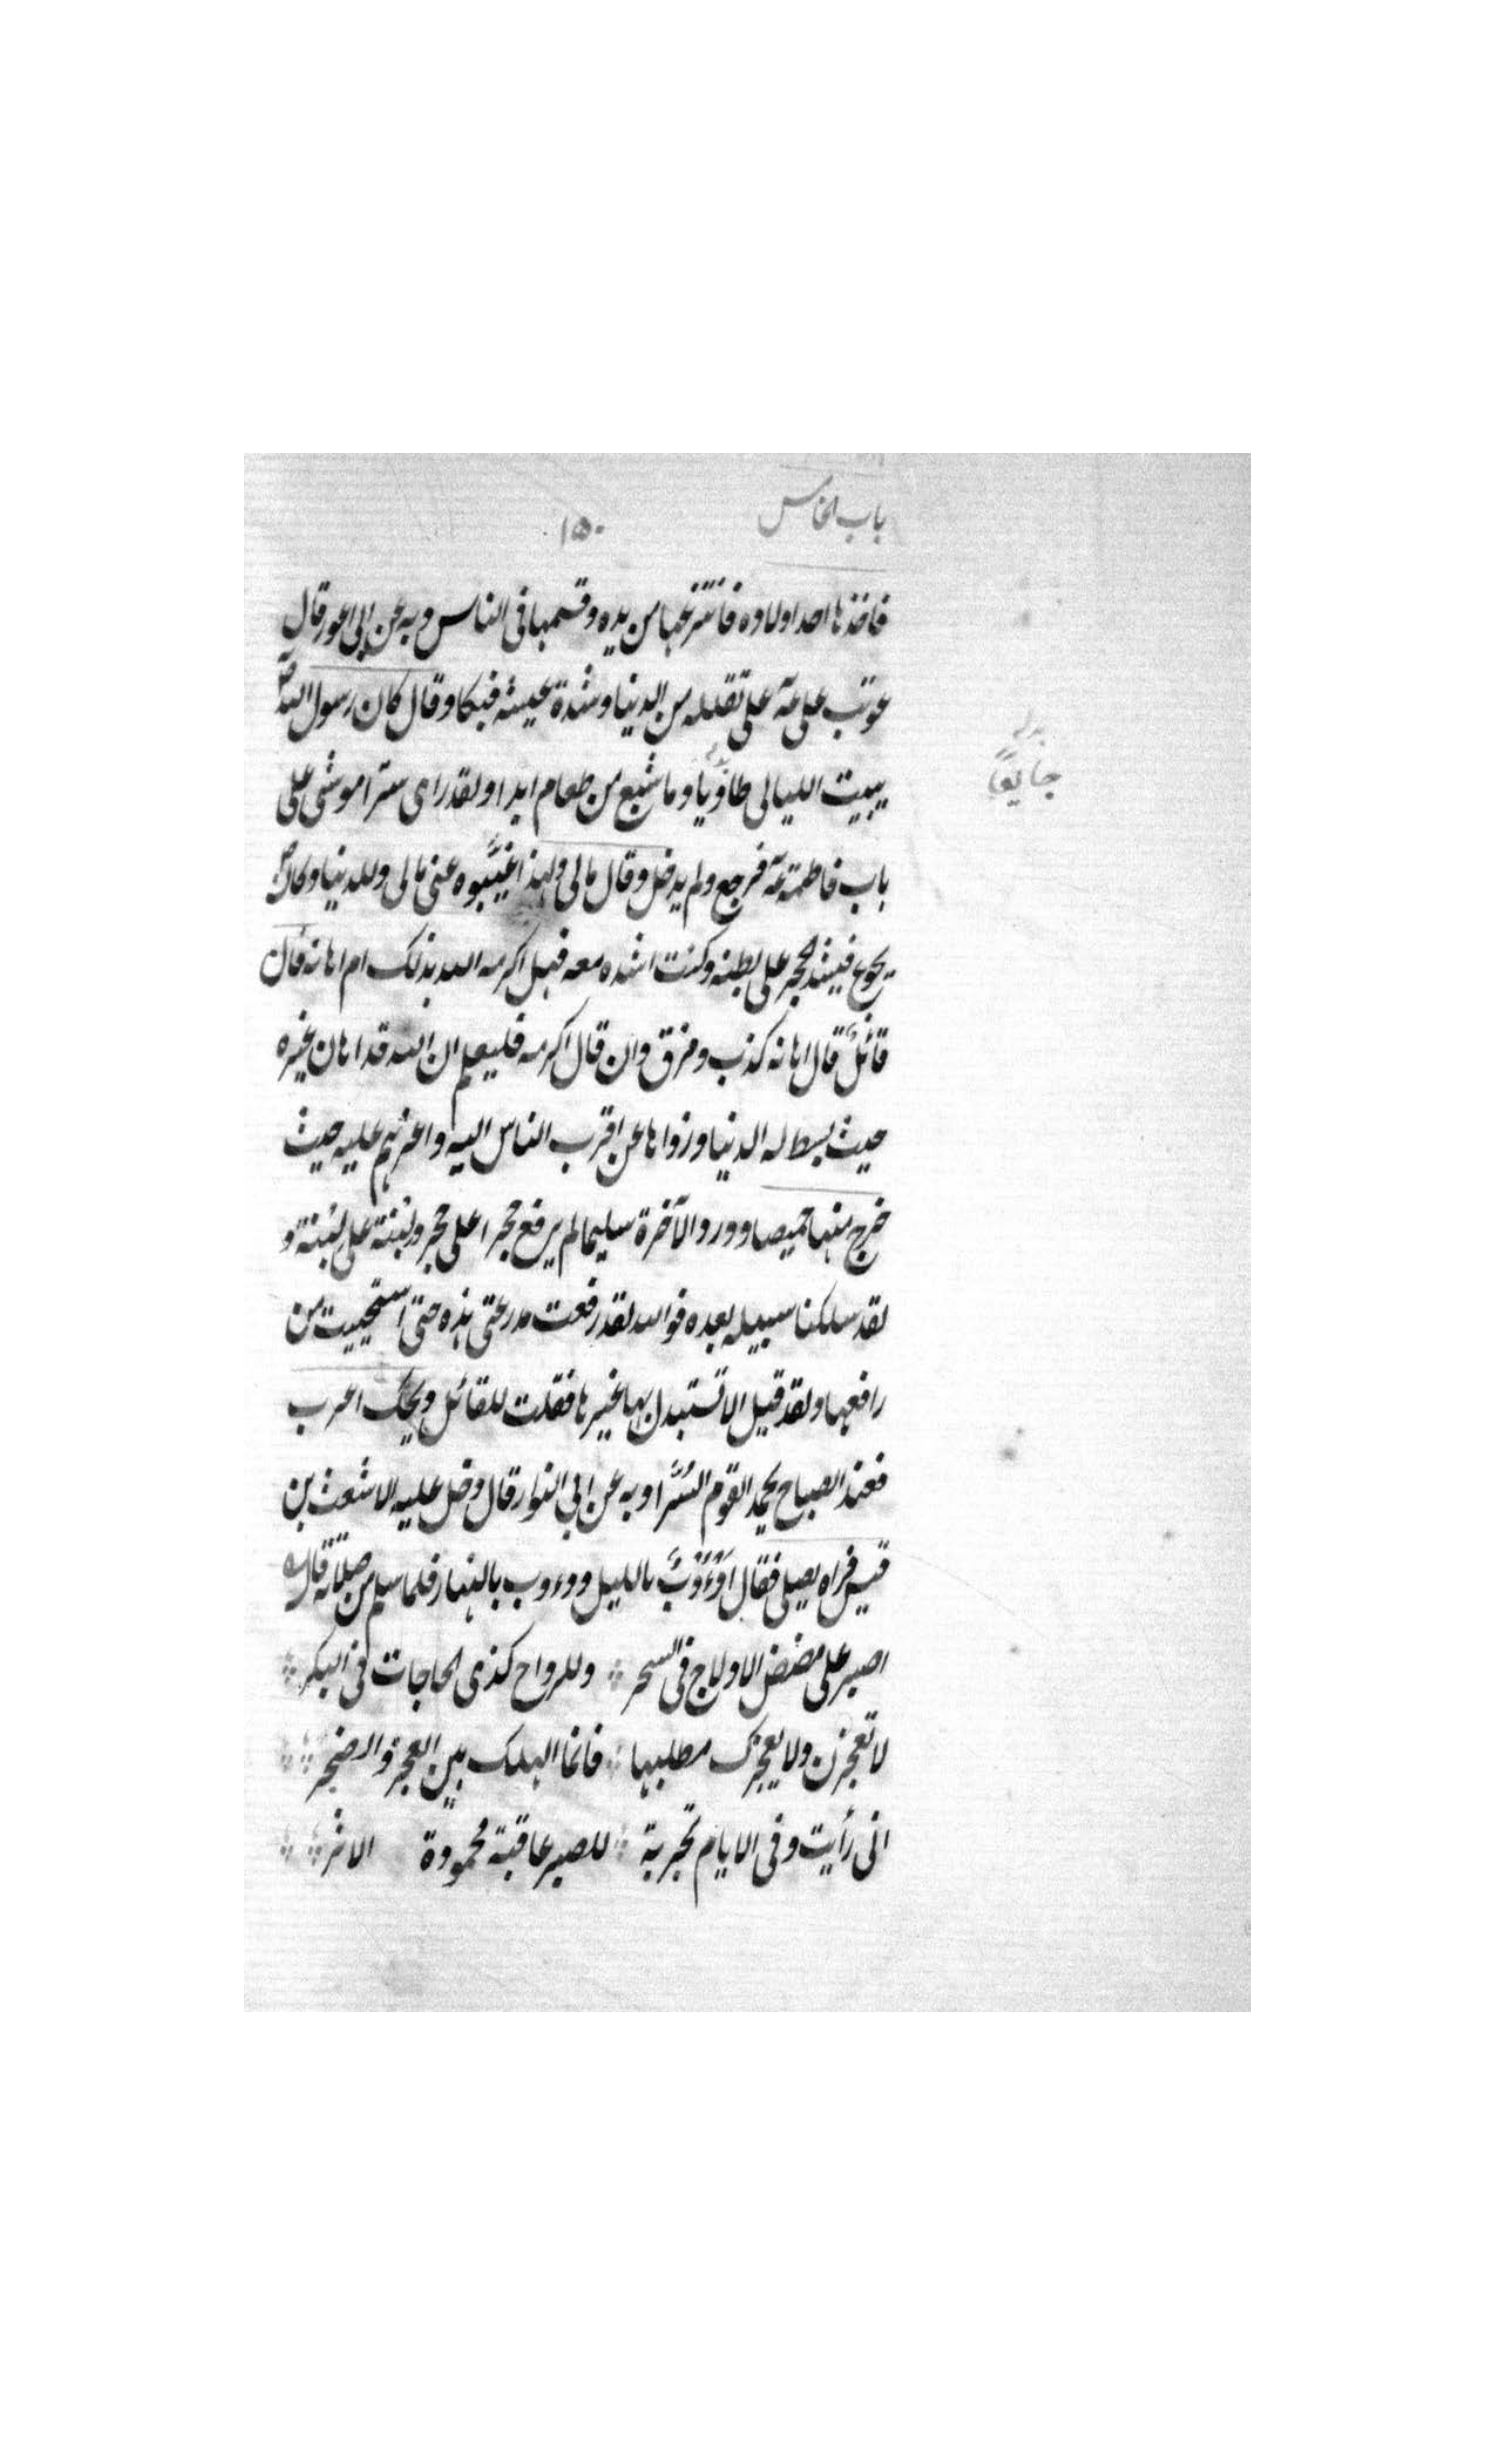 باب الخامس
۱۵۰
فاخذها احد اولاده فانتزعها من يده وقسمها فى الناس وبه عن ابى اعور قال
عوتب على عه على تقلله من الدنيا وشدة عيشه فبكا وقال كان رسول الله ص
يبيت الليالى طاويا وما شبع من طعام ابدا ولقد راى سترا موشى على
جايعًا
باب فاطمة عه فرجع ولم يدخل وقال مالى ولهذا غيّبوه عنى مالى وللدنيا وكان
يجوع فيشد الحجر على بطنه وكنت اشده معه فهل اكرمه الله بذلك ام اهانه فان
قائلٌ قال اهانه كذب ومزق وان قال اكرمه فليعلم ان الله قد اهان غيره
حيث بسط له الدنيا وزواها عن اقرب الناس اليه واعزهم عليه حيث
خرج منها خميصا وورد الآخرة سليما لم يرفع حجرا على حجر ولبنة على لبنة و
لقد سلكنا سبيله بعده فوالله لقد رقعت مدرعتى هذه حتى استحييت من
راقعها ولقد قيل الا تستبدل بها غيرها فقلت للقائل ويحك اعزب
فعند الصباح يحمد القوم السُّرَا وبه عن ابى النوار قال دخل عليه الاشعث بن
قيس فراه يصلى فقال اَدُؤُوبٌ بالليل ودءوب بالنهار فلما سلم من صلاته قال
اصبر على مضض الادلاج فى السحر وللرواح كذى الحاجات فى البكر
لا تعجزن ولا يعجزك مطلبها فانما الهلك بين العجز والضجر
انى رأيت وفى الايام تجربة للصبر عاقبة محمودة الاثر